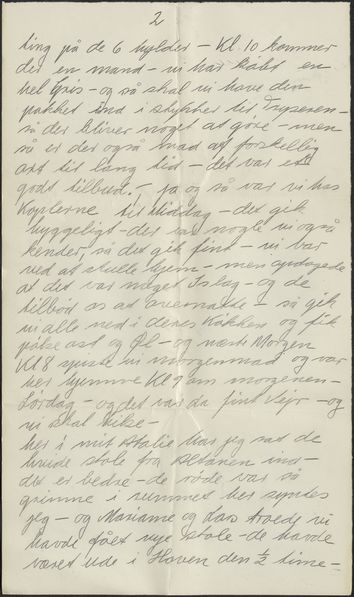 2
ting på de 6 hylder – Kl. 10 kommer
der en mand – vi har købt en
hel Gris – og så skal vi have den
pakket ind i stykker til Fryseren –
så der bliver noget at gøre – men
så er der også mad af forskellig
art til lang tid – det var et
godt tilbud. – ja og så var vi hos
til Middag – det gik
hyggeligt – der var nogle vi også
kender, så det gik fint – vi var
ved at skulle hjem – men opdagede
at det var meget Islag – og de
tilbød os at overnatte – så gik
vi alle ned i deres Køkken og fik
pølse ost og Øl – og næste Morgen
Kl 8 spiste vi morgenmad og var
her hjemme Kl 9 om morgenen –
Lørdag – og det var da fint Vejr – og
vi skal hilse –
her i mit Atelie har jeg sat de
hvide stole fra ind –
det er bedre – de røde var så
grimme i rummet her syntes
jeg – og Marianne og Lars troede vi
havde fået nye stole – de havde
været ude i Haven den ½ time –